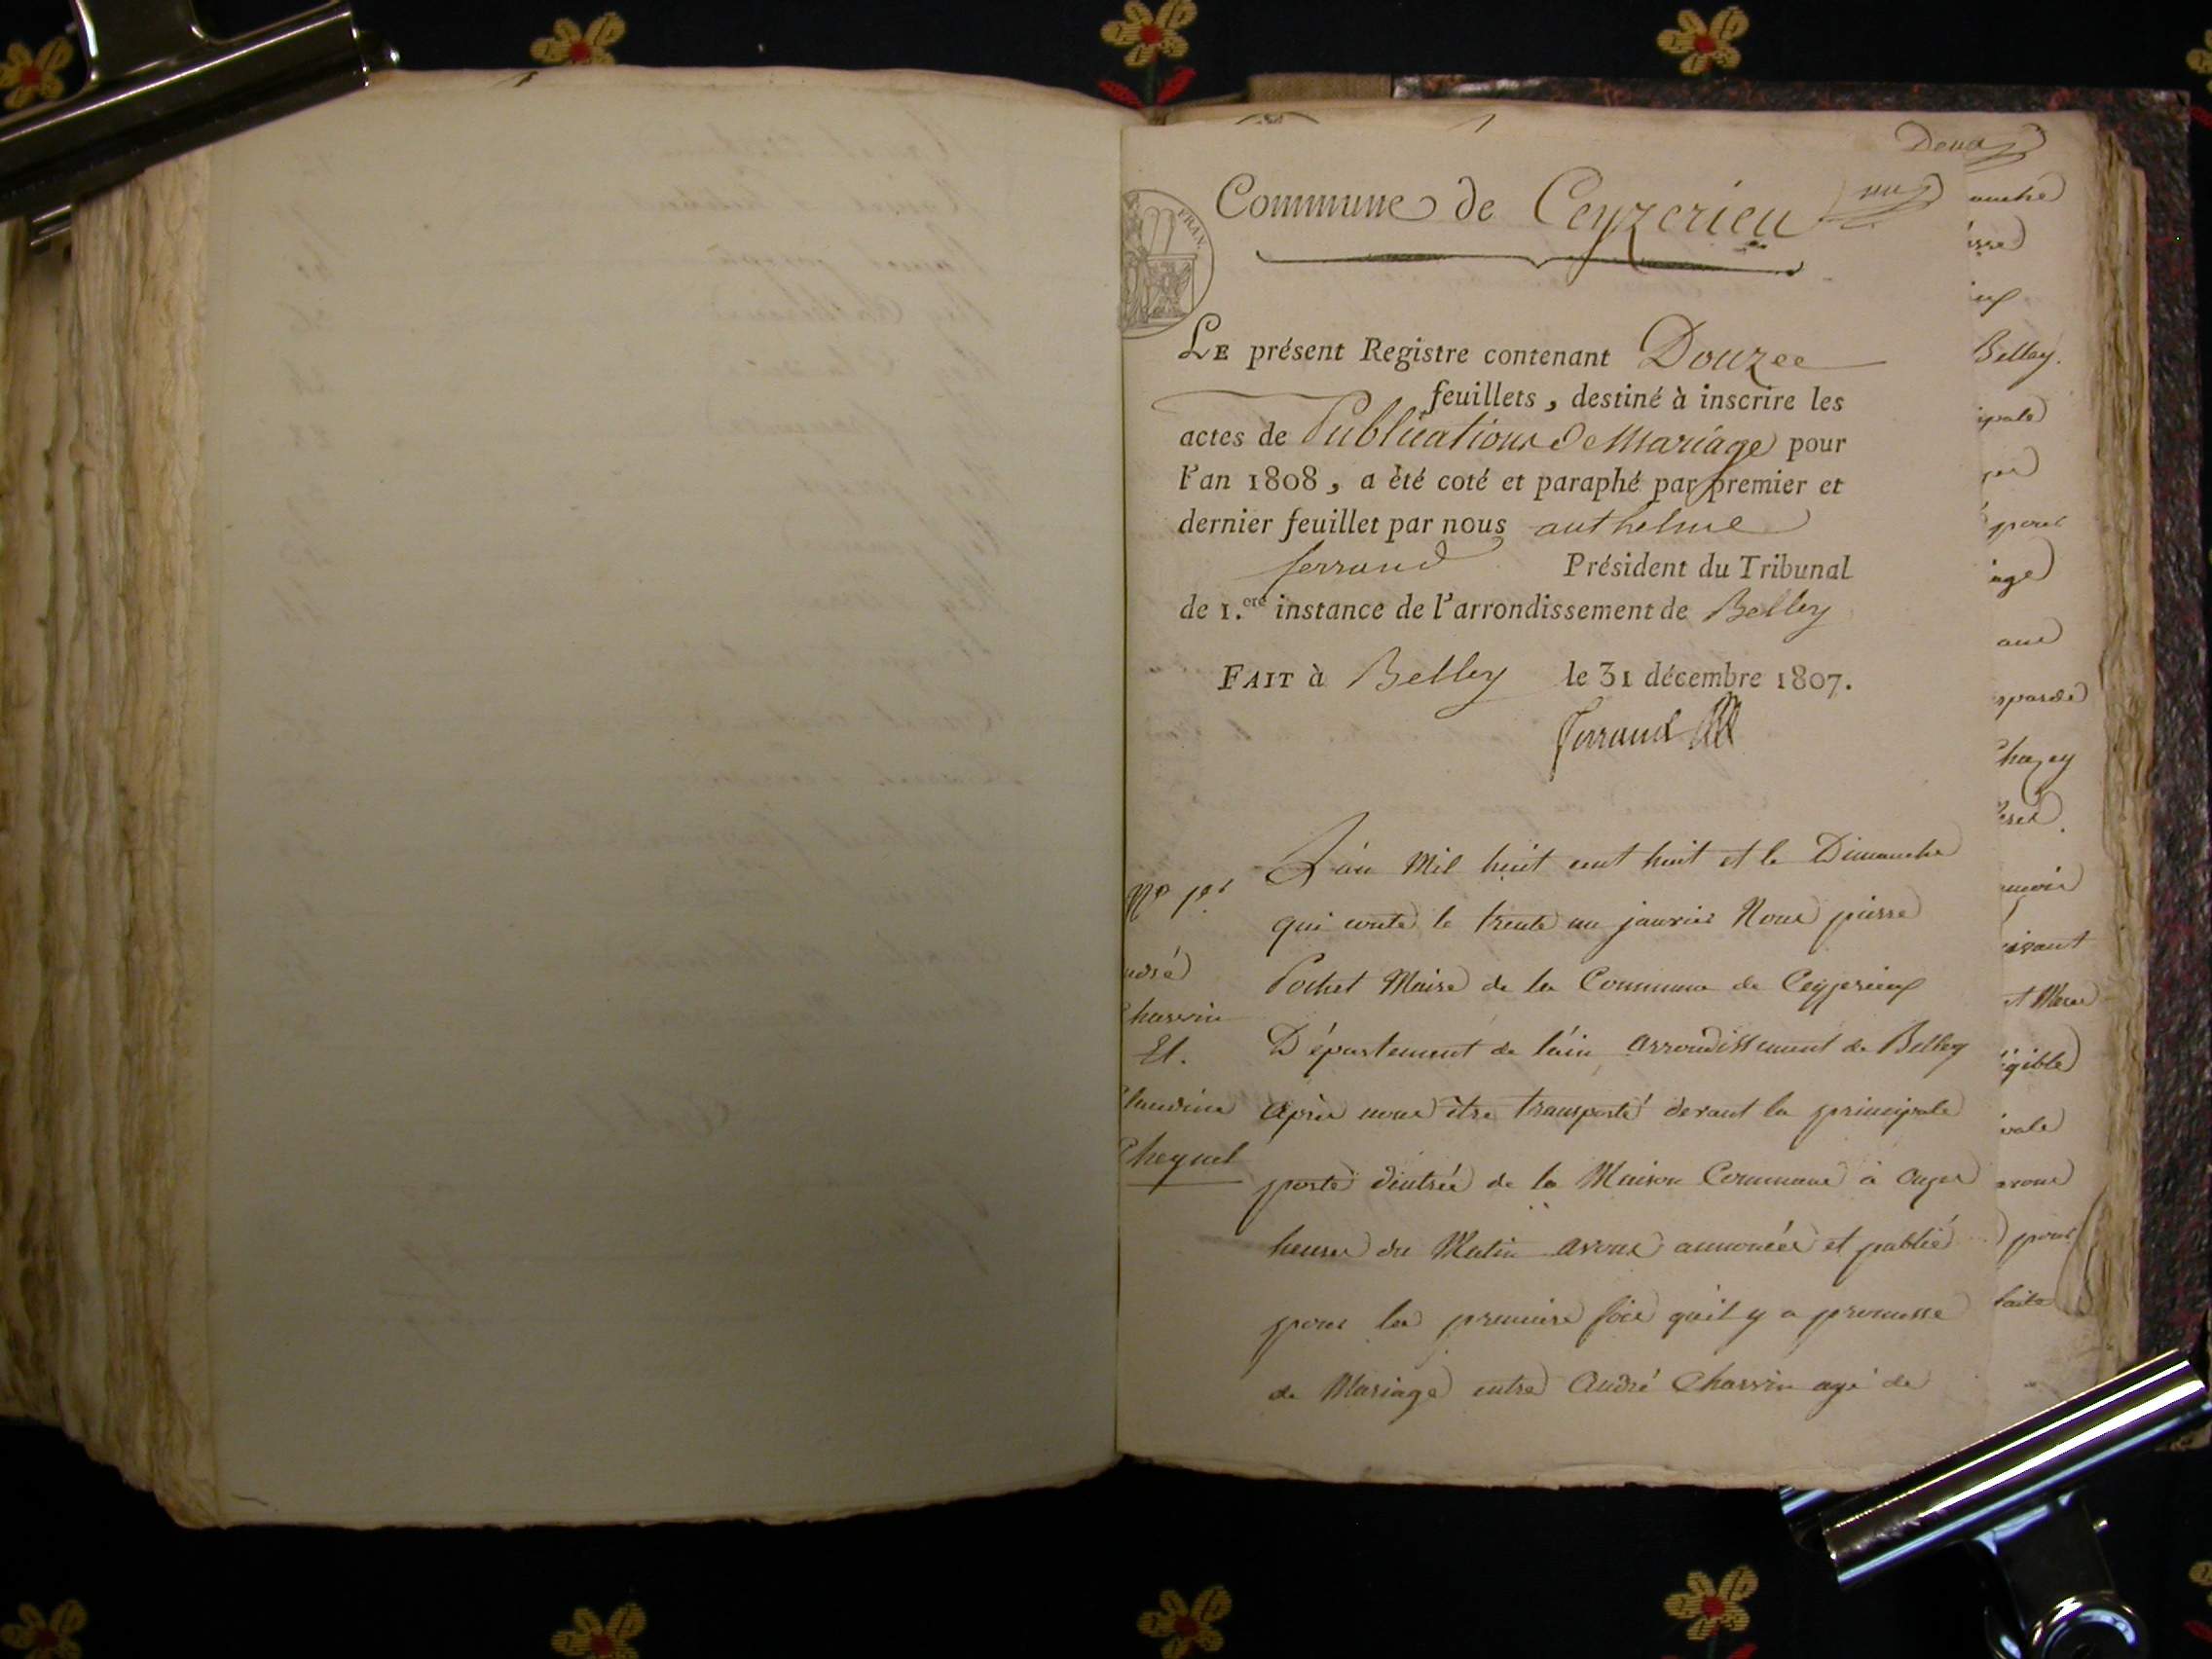 Deux
un
Commune de Ceyzerieu
FRAN.
LE présent Registre contenant Douzee
feuillets, destiné à inscrire les
actes de Publications de Mariage pour
l'an 1808, a été coté et paraphé par premier et
dernier feuillet par nous anthelme
ferrand Président du Tribunal
de 1.ere instance de l'arrondissement de Belley
FAIT à Belley le 31 décembre 1807.
ferrand
N° 1er
ndré
Chavvin
Et.
Claudine
Cheynel
L'an Mil huit cent huit et le Dimanche
qui conte le trente un janvier Nous pierre
Pochet Maire de la Commune de Ceyzerieux
Département de l'ain arrondissement de Belley
après nous être transporté devant la principale
porte d'entrée de la Maison Commune à onze
heures du Matin avons annoncée et publié
pour la premiere fois qu'il y a promesse
de Mariage entre André Chavvin agé de
Belley.
ipale
pour
iage
Chazey
vivant
et Mere
pour
faite